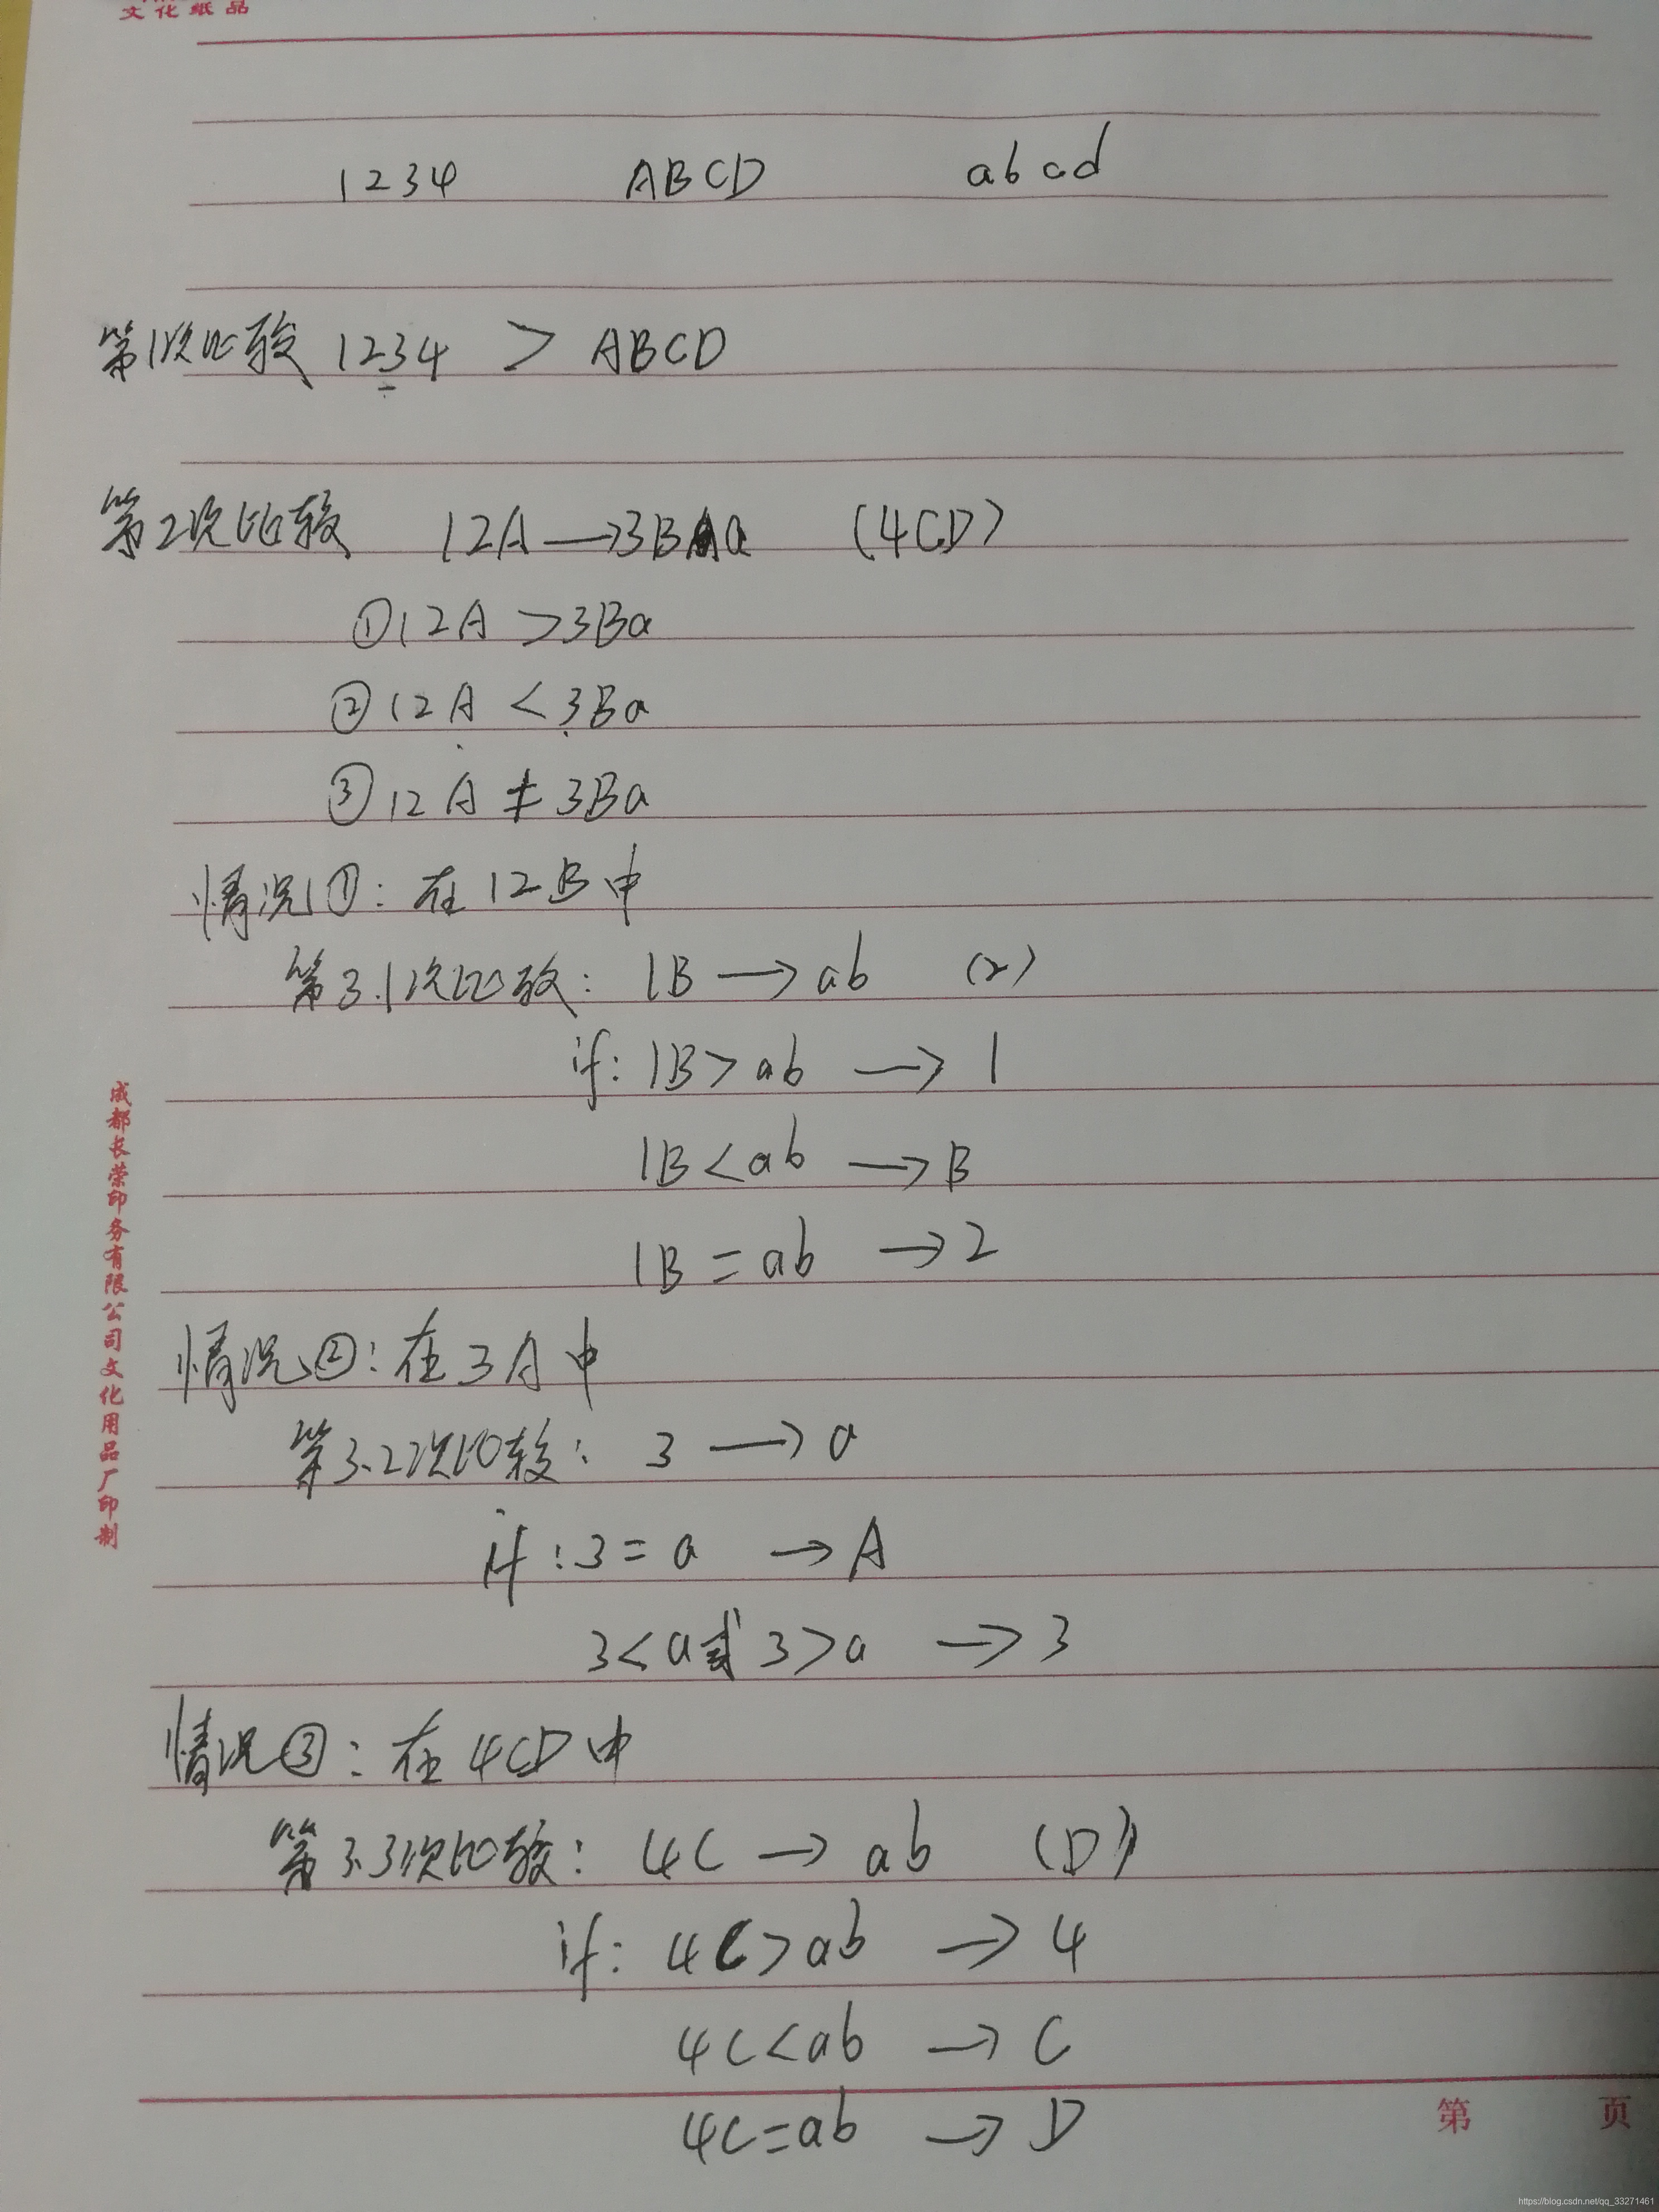 文化纸品
1234 ABCD abcd
第1次比较 1234 > ABCD
第2次比较 12A →3Ba (4CD)
①12A >3Ba
②12A <3Ba
③12A ≠ 3Ba
情况①: 在12B中
第3.1次比较: 1B → ab (2)
if: 1B > ab → 1
1B < ab → B
1B = ab → 2
情况②: 在3A中
第3.2次比较: 3 → a
if :3 = a → A
3<a或 3>a → 3
情况③: 在4CD中
第3.3次比较: 4C → ab (D)
if: 4C>ab → 4
4C<ab → C
4C=ab → D
成都长荣印务有限公司文化用品厂印制
第 页
https://blog.csdn.net/qq_33271461